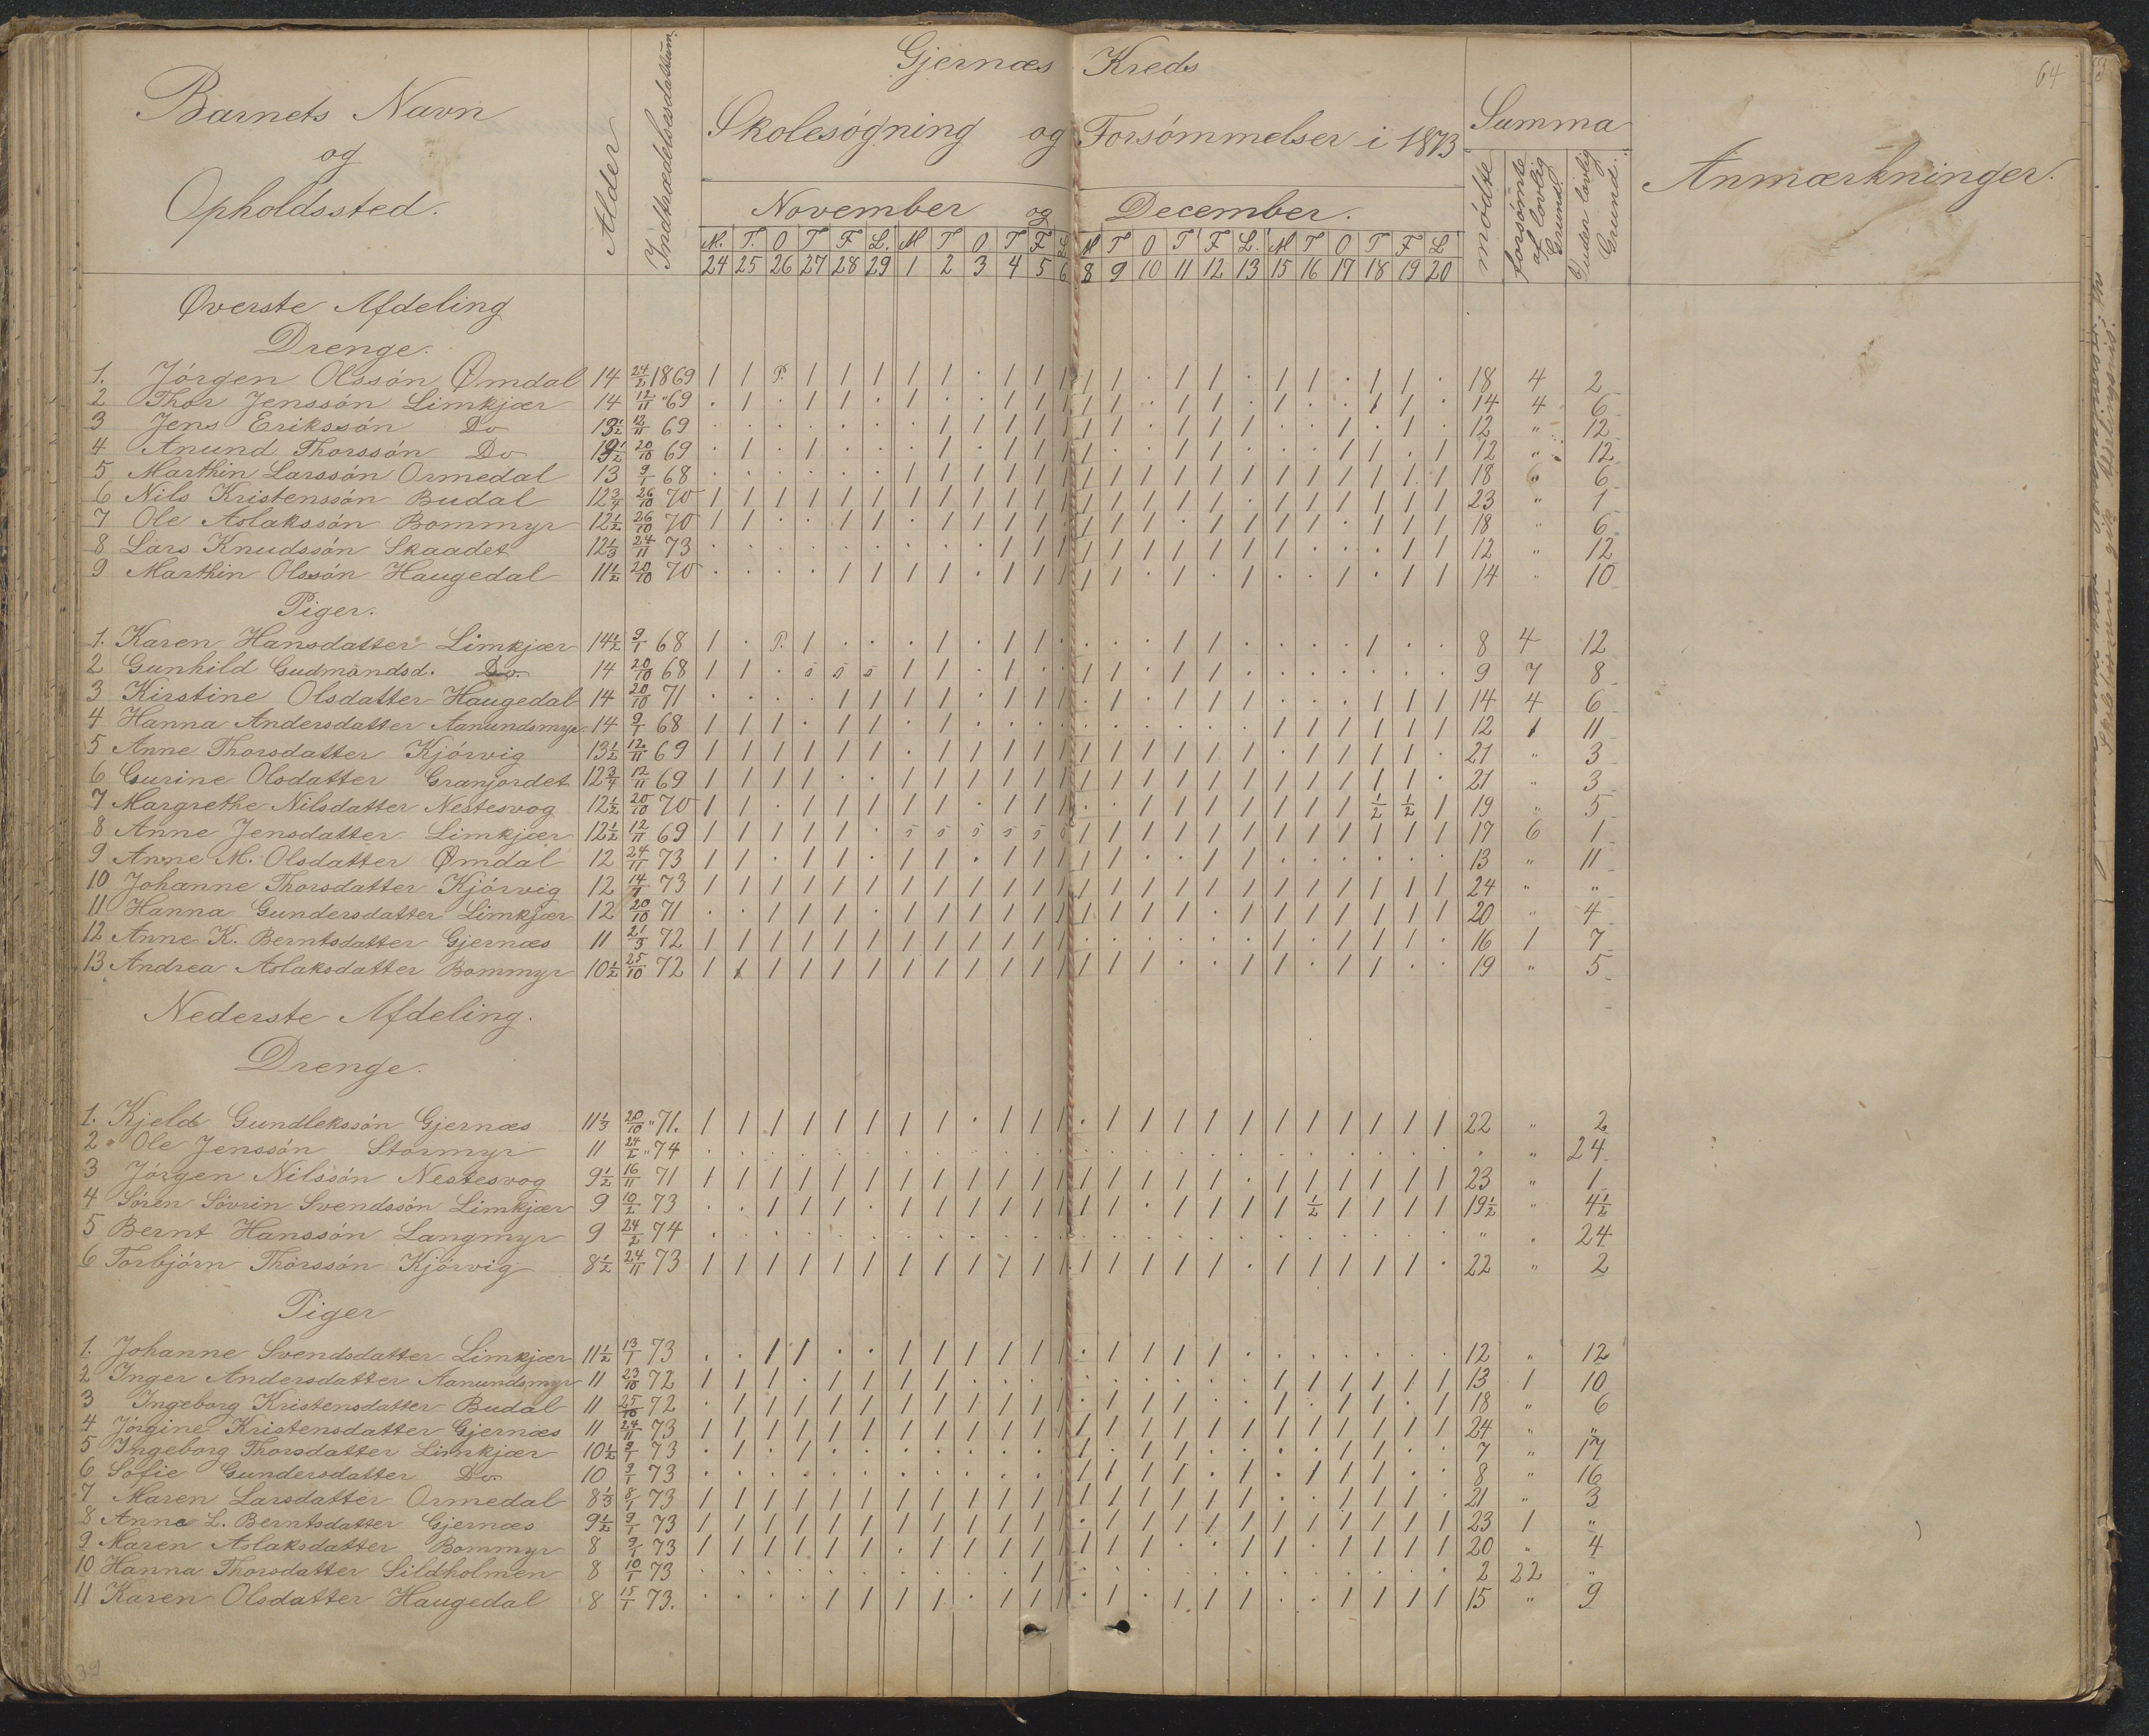 64
Gjernæs Kreds
Barnets Navn
og
Opholdssted.
Alder
Indtrædelsesdatum.
Skolesøgning og Forsømmelser i 1873
Summa
Anmærkninger.
November og December.
mødte
forsømte af lovlig Grund.
uden lovlig Grund.
M. T. O T F L. M T O T F L M T O T F L. M T O T F L
24 25 26 27 28 29 1 2 3 4 5 6 8 9 10 11 12 13 15 16 17 18 19 20
Øverste Afdeling
Drenge.
1. Jörgen Olssön Ømdal 14 24/2 1869 1 1 P. 1 1 1 1 1 . 1 1 1 1 1 . 1 1 . 1 1 . 1 1 . 18 4 2
2 Thor Jenssön Limkjær 14 12/11 " 69 . 1 . 1 1 . 1 . . 1 1 1 1 1 . 1 1 . 1 . . 1 1 . 14 4 6
3 Jens Erikssön Do 13 1/2 12/11 69 . . . . . . . 1 1 1 1 1 1 1 . 1 1 1 . . 1 . 1 . 12 " 12
4 Anund Thorssön Do 13 1/2 20/10 69 . 1 . 1 . . . 1 . 1 1 1 1 . . 1 1 . . . 1 1 . 1 12 " 12
5 Marthin Larssön Ormedal 13 9/1 68 . . . . . . 1 1 1 1 1 1 1 1 1 1 1 1 1 1 1 1 1 1 18 " 6
6 Nils Kristenssön Budal 12 3/4 26/10 70 1 1 1 1 1 1 1 1 1 1 1 1 1 1 1 1 1 . 1 1 1 1 1 1 23 " 1
7 Ole Aslakssön Bommyr 12 1/2 26/10 70 1 1 . . 1 1 . 1 1 1 1 . 1 1 1 . 1 1 1 1 . 1 1 1 18 " 6
8 Lars Knudssön Skaadet 12 1/3 24/11 73 . . . . . . . . . 1 1 1 1 1 1 1 1 1 1 . . . 1 1 12 " 12
9 Marthin Olssön Haugedal 11 1/2 20/10 70 . . . . 1 1 1 1 . 1 1 1 1 1 . 1 . 1 . . 1 . 1 1 14 " 10
Piger.
1. Karen Hansdatter Limkjær 14 1/2 9/1 68 1 . P. 1 . . . 1 . 1 1 . . . . 1 1 . . . . 1 . . 8 4 12
2 Gunhild Gudmandsd. Do. 14 20/10 68 1 1 . s s s 1 1 . 1 . . 1 1 . 1 1 . . . . . . . 9 7 8
3 Kirstine Olsdatter Haugedal 14 20/10 71 . . . . 1 1 1 1 . 1 1 1 . 1 . 1 1 1 . . . 1 1 1 14 4 6
4 Hanna Andersdatter Aanundsmyr 14 9/1 68 1 1 1 . 1 1 . 1 . . . . . . . . . . 1 1 1 1 1 1 12 1 11
5 Anne Thorsdatter Kjörvig 13 1/2 12/11 69 1 1 1 1 1 1 . 1 1 1 1 1 1 1 1 1 1 . 1 1 1 1 1 . 21 " 3
6 Gurine Olsdatter Granjordet 12 3/4 12/11 69 1 1 1 1 . . 1 1 1 1 1 1 1 1 1 1 1 1 1 1 1 1 1 . 21 " 3
7 Margrethe Nilsdatter Nestesvog 12 1/2 20/10 70 1 1 . 1 1 1 1 1 . 1 1 1 . . 1 1 1 1 1 1 1 1/2 1/2 1 19 " 5
8 Anne Jensdatter Limkjær 12 1/2 12/11 69 1 1 1 1 1 . s s s s s s 1 1 1 1 1 1 1 1 1 1 1 1 17 6 1
9 Anne M. Olsdatter Ømdal 12 24/11 73 1 1 . 1 1 . 1 1 . 1 1 1 1 1 . . 1 1 . . . . . . 13 " 11
10 Johanne Thorsdatter Kjörvig 12 14/1 73 1 1 1 1 1 1 1 1 1 1 1 1 1 1 1 1 1 1 1 1 1 1 1 1 24 " "
11 Hanna Gundersdatter Limkjær 12 20/10 71 . . 1 1 1 . 1 1 1 1 1 1 1 1 1 1 . 1 1 1 1 1 1 1 20 " 4
12 Anne K. Berntsdatter Gjernæs 11 21/3 72 1 1 1 1 1 1 1 1 1 1 1 1 . . . . . . 1 . 1 1 1 . 16 1 7
13 Andrea Aslaksdatter Bommyr 10 1/2 25/10 72 1 1 1 1 1 1 1 1 1 1 1 1 1 1 1 . . 1 1 . 1 1 . . 19 " 5
Nederste Afdeling.
Drenge.
1. Kjeld Gundlekssön Gjernæs 11 1/3 20/10 " 71. 1 1 1 1 1 1 1 1 . 1 1 1 . 1 1 1 1 1 1 1 1 1 1 1 22 " 2
2 Ole Jenssön Stormyr 11 24/2 " 74 . . . . . . . . . . . . . . . . . . . . . . . . " " 24
3 Jörgen Nilssön Nestesvog 9 1/2 16/11 71 1 1 1 1 1 1 1 1 1 1 1 1 1 1 1 1 1 . 1 1 1 1 1 1 23 " 1
4 Sören Sövrin Svendssön Limkjær 9 10/2 73 . . 1 1 1 . 1 1 1 1 1 1 1 1 . 1 1 1 1 1/2 1 1 1 1 19 1/2 " 4 1/2
5 Bernt Hanssön Langmyr 9 24/2 74 . . . . . . . . . . . . . . . . . . . . . . . . " . 24
6 Torbjörn Thorssön Kjörvig 8 1/2 24/11 73 1 1 1 1 1 1 1 1 1 1 1 1 1 1 1 1 1 . 1 1 1 1 1 . 22 " 2
Piger
1. Johanne Svendsdatter Limkjær 11 1/2 13/1 73 . . 1 1 . . 1 1 1 1 1 1 . 1 1 1 1 . . . . . . . 12 " 12
2 Inger Andersdatter Aanundsmyr 11 23/10 72 1 1 1 . 1 1 1 . . . . . . . . . . . 1 1 1 1 1 1 13 1 10
3 Ingeborg Kristensdatter Budal 11 25/10 72 . 1 1 1 1 1 1 1 1 1 1 1 . 1 1 1 . . 1 . 1 1 . 1 18 " 6
4 Jörgine Kristensdatter Gjernæs 11 24/11 73 1 1 1 1 1 1 1 1 1 1 1 1 1 1 1 1 1 1 1 1 1 1 1 1 24 " "
5 Ingeborg Thorsdatter Limkjær 10 1/2 9/1 73 . 1 . 1 . . . . . . . . 1 . 1 1 . . . . 1 1 . . 7 " 17
6 Sofie Gundersdatter Do. 10 9/1 73 . . . . . . . . . . . . 1 1 1 1 . 1 . 1 1 1 . . 8 " 16
7 Maren Larsdatter Ormedal 8 1/3 8/1 73 1 1 1 1 1 1 1 1 1 1 1 1 1 1 1 1 1 1 . . 1 1 1 . 21 " 3
8 Anne L. Berntsdatter Gjernæs 9 1/2 9/1 73 1 1 1 1 1 1 1 1 1 1 1 1 . 1 1 1 1 1 1 1 1 1 1 1 23 1 "
9 Maren Aslaksdatter Bommyr 8 9/1 73 1 1 1 1 1 1 . 1 1 1 1 1 1 1 1 . . 1 1 . 1 1 1 1 20 " 4
10 Hanna Thorsdatter Sildholmen 8 10/1 73 . . . . . . . . . . 1 1 . . . . . . . . . . . . 2 22 "
11 Karen Olsdatter Haugedal 8 15/1 73. . . . . 1 1 1 1 . 1 1 1 . 1 . 1 1 1 . . 1 1 1 1 15 " 9
39